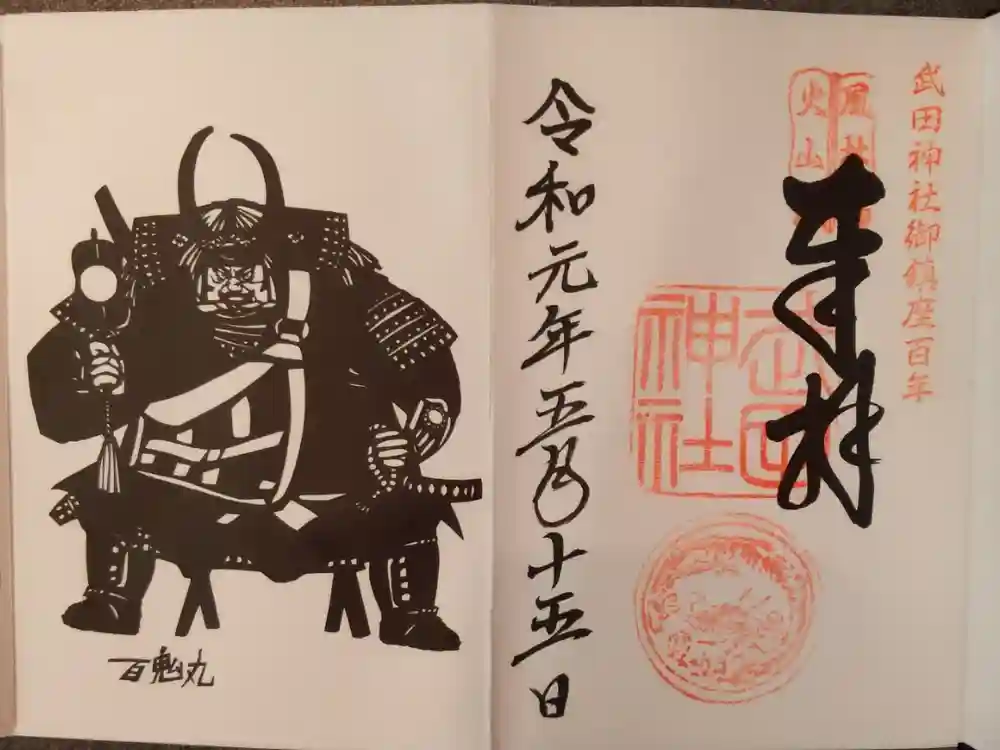 武田神社御鎮座百年
風林
火山
奉拝
武田
神社
令和元年五月十五日
百鬼丸